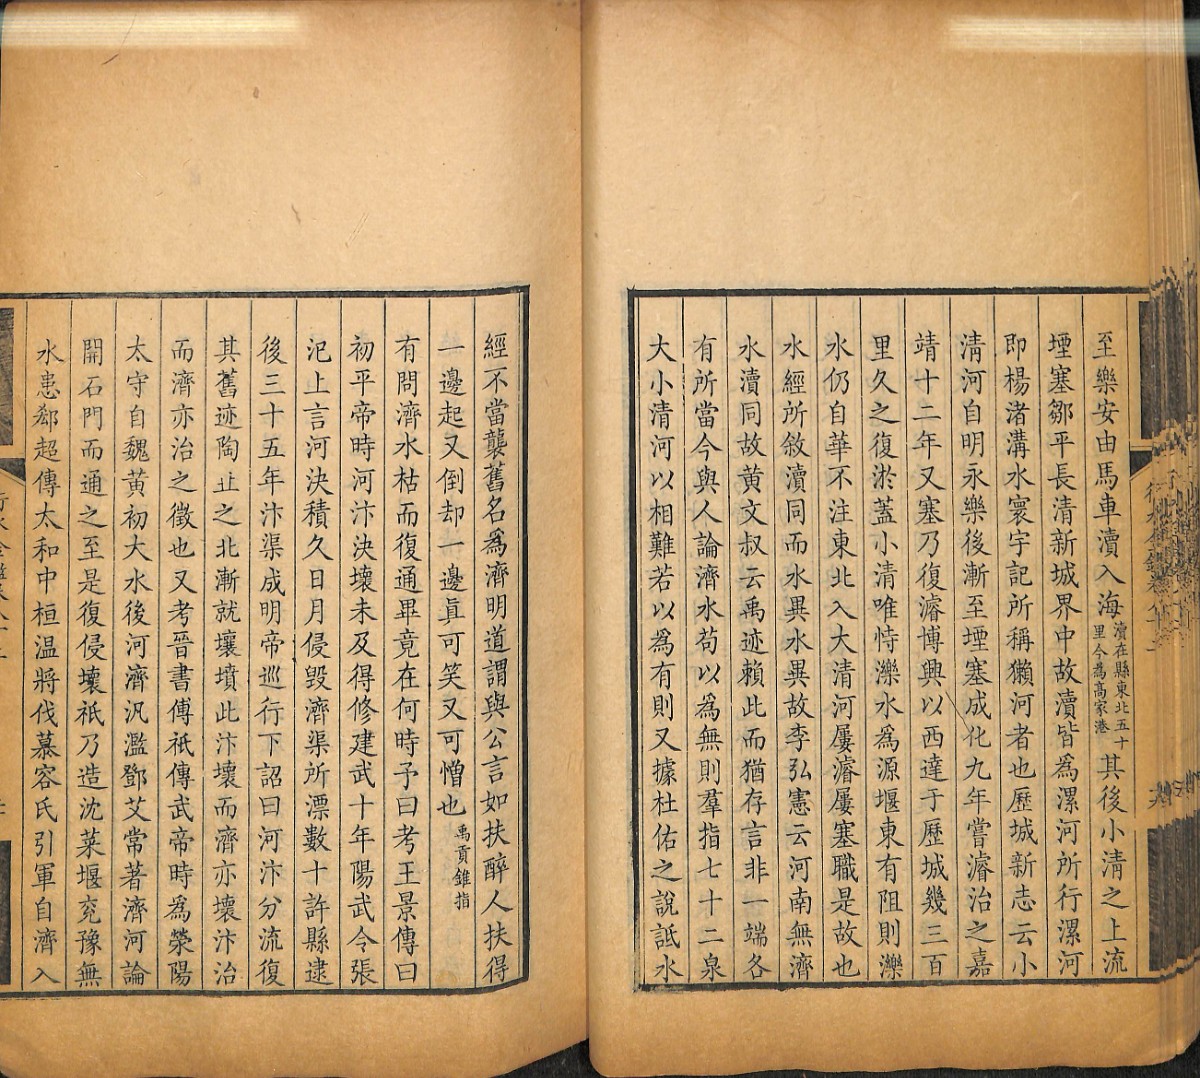 至樂安由馬車瀆入海瀆在縣東北五十里今爲高家港其後小淸之上流
堙塞鄒平長清新城界中故瀆皆爲漯河所行漯河
即楊渚溝水寰宇記所稱獺河者也歷城新志云小
淸河自明永樂後漸至堙塞成化九年嘗濬治之嘉
靖十二年又塞乃復濬博興以西達于歷城幾三百
里久之復淤蓋小清唯恃濼水爲源堰東有阻則濼
水仍自華不注東北入大清河屢濬屢塞職是故也
水經所敘瀆同而水異水異故李弘憲云河南無濟
水瀆同故黄文叔云禹迹賴此而猶存言非一端各
有所當今與人論濟水苟以爲無則羣指七十二泉
大小清河以相難若以爲有則又據杜佑之說詆水
經不當襲舊名爲濟明道謂與公言如扶醉人扶得
一邊起又倒却一邊眞可笑又可憎也禹貢錐指
有問濟水枯而復通畢竟在何時予曰考王景傳曰
初平帝時河汴決壞未及得修建武十年陽武令張
汜上言河決積久日月侵毀濟渠所漂數十許縣逮
後三十五年汴渠成明帝巡行下詔曰河汴分流復
其舊迹陶丘之北漸就壤墳此汴壞而濟亦壞汴治
而濟亦治之徵也又考晉書傅祇傳武帝時爲滎陽
太守自魏黄初大水後河濟汎濫鄧艾常著濟河論
開石門而通之至是復侵壞祇乃造沈萊堰兖豫無
水患郗超傳太和中桓温將伐慕容氏引軍自濟入